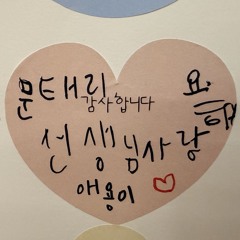 문태리
감사합니다
선생님사랑해요.
애용이